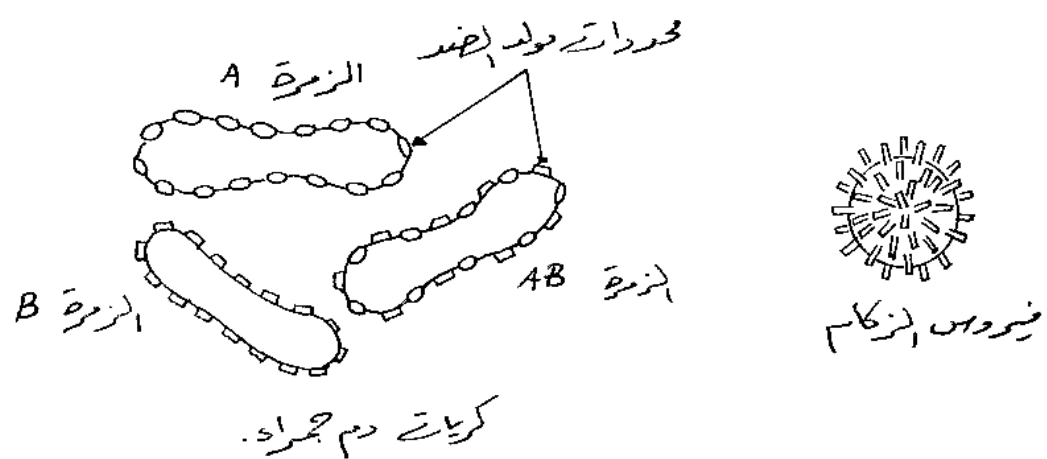 محددات مولد الضد
الزمرة A
الزمرة AB
الزمرة B
فيروس الزكام
كريات دم حمراء.